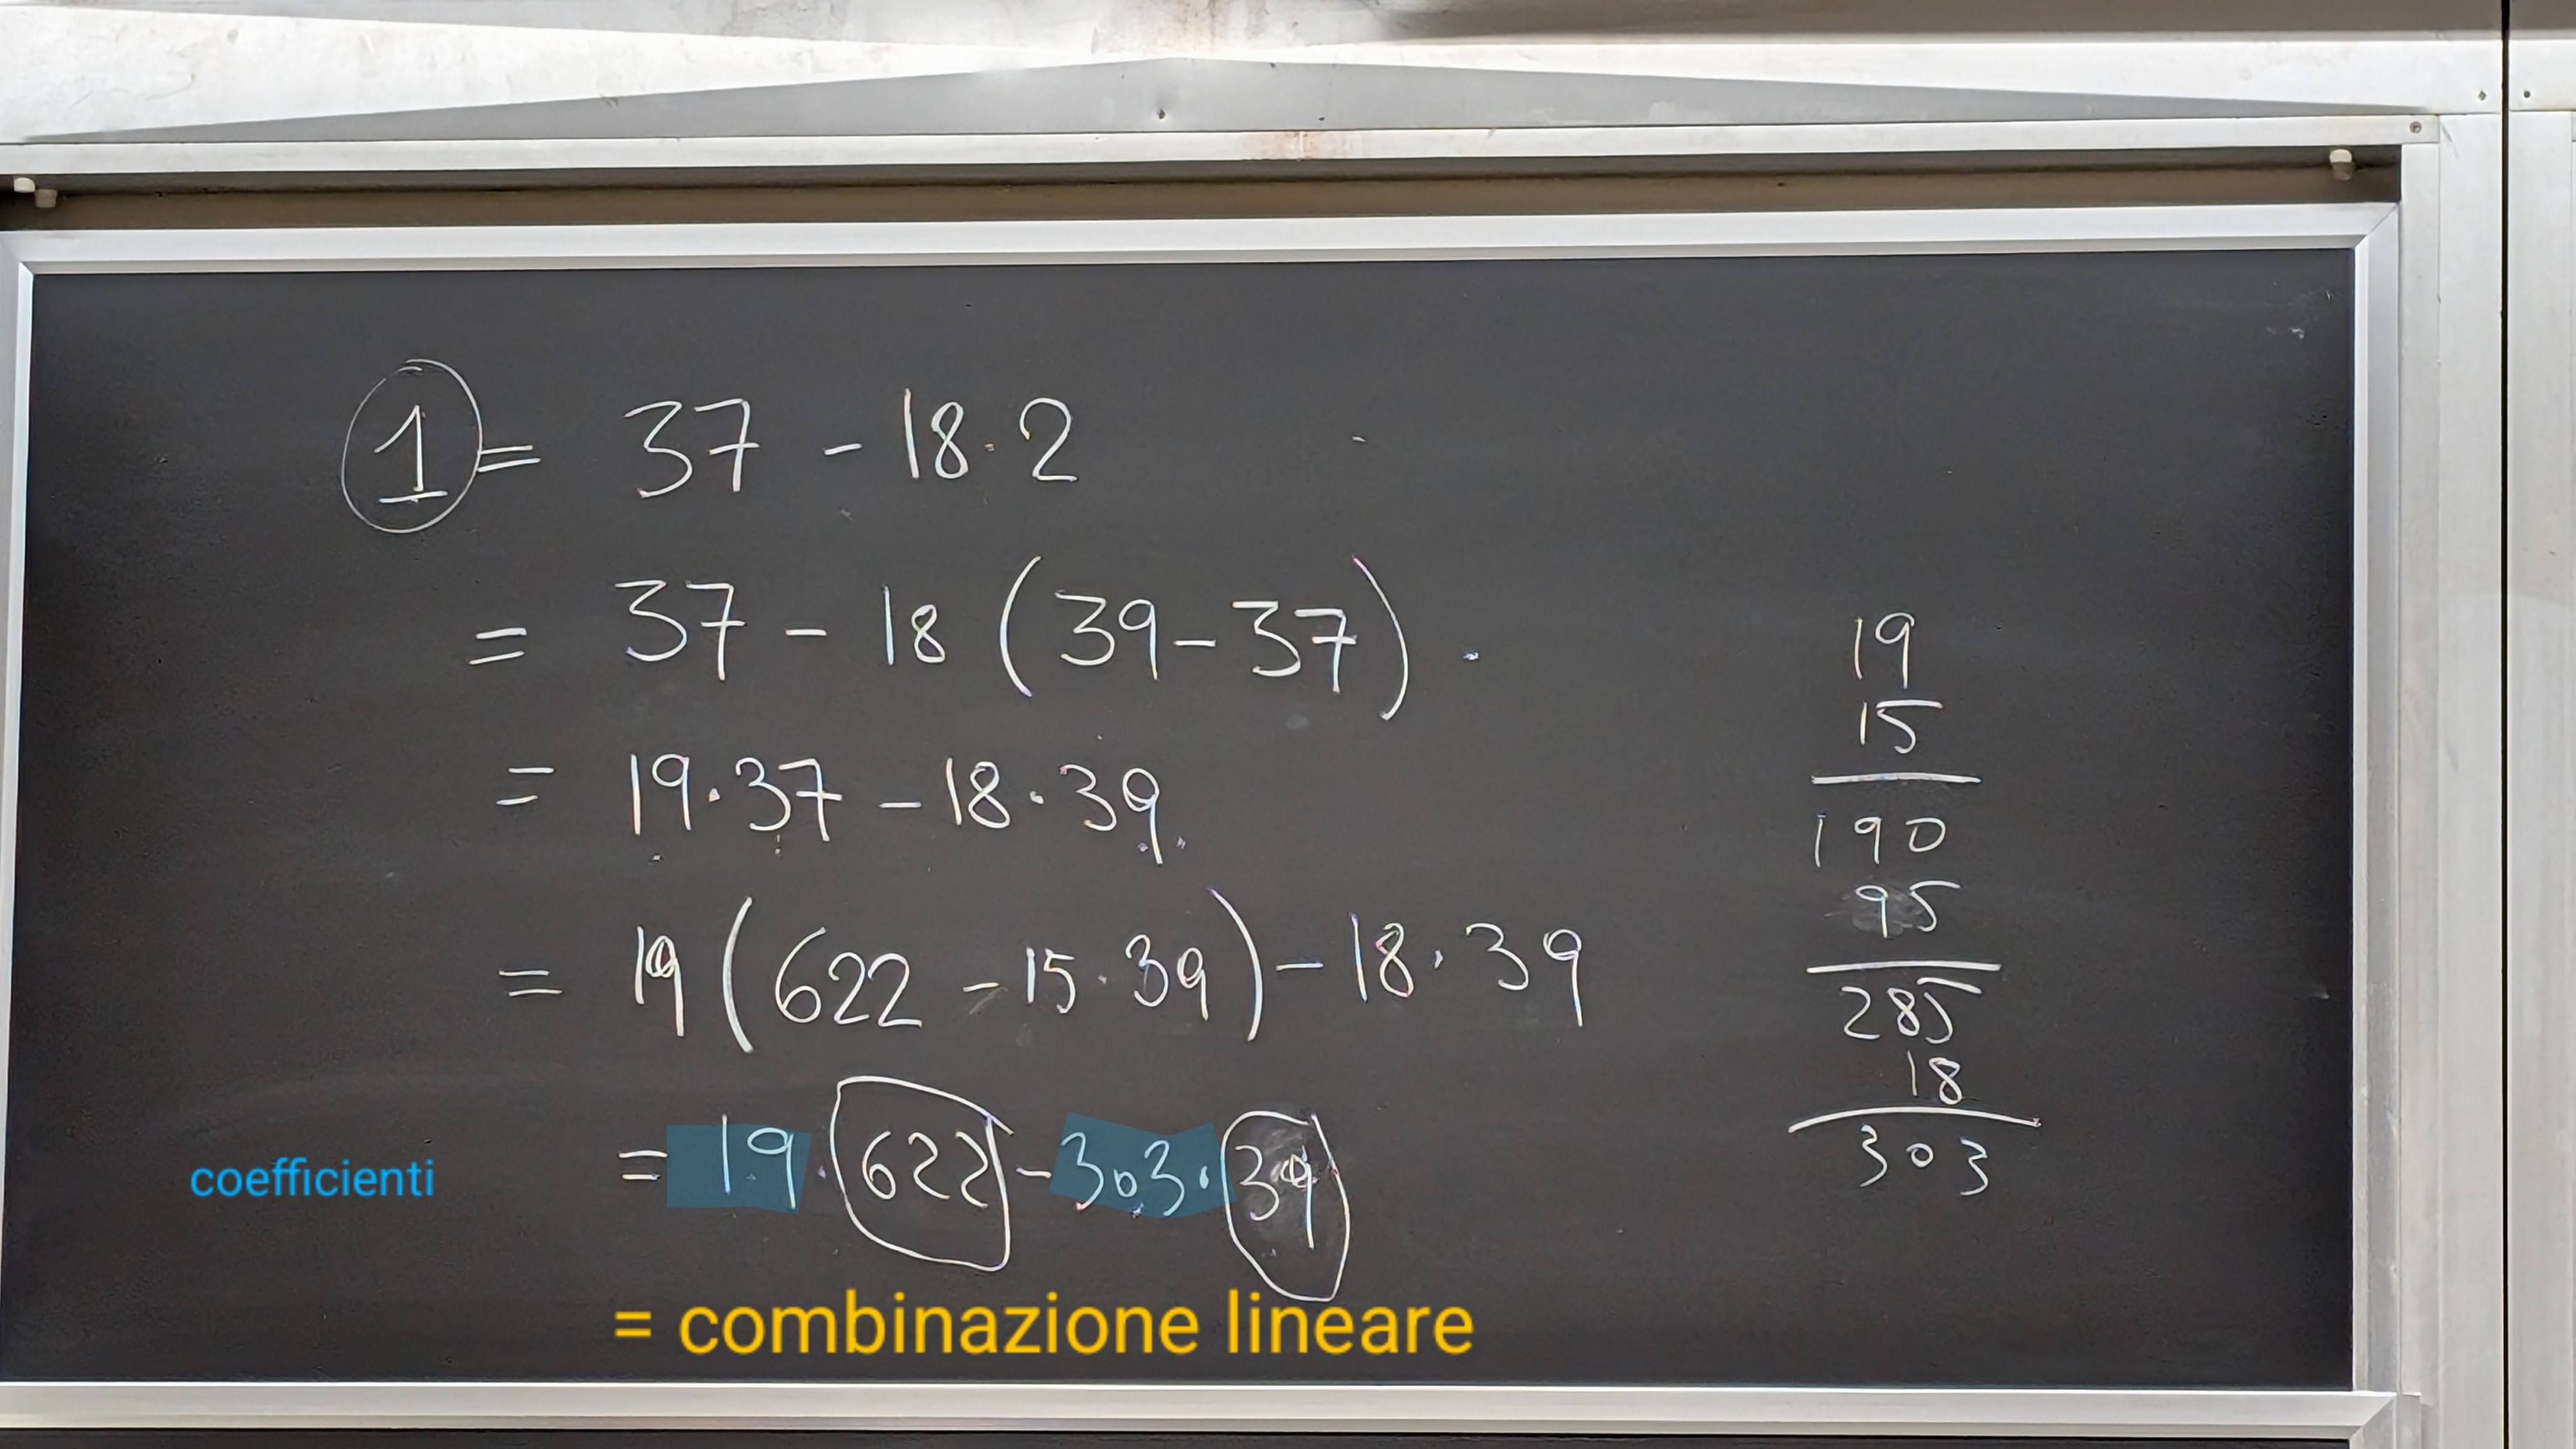 1 = 37 - 18·2
= 37 - 18 (39-37)
= 19·37 - 18·39
= 19 (622 - 15·39) - 18·39
coefficienti = 19·622 - 303·39
= combinazione lineare
19
15
190
95
285
18
303